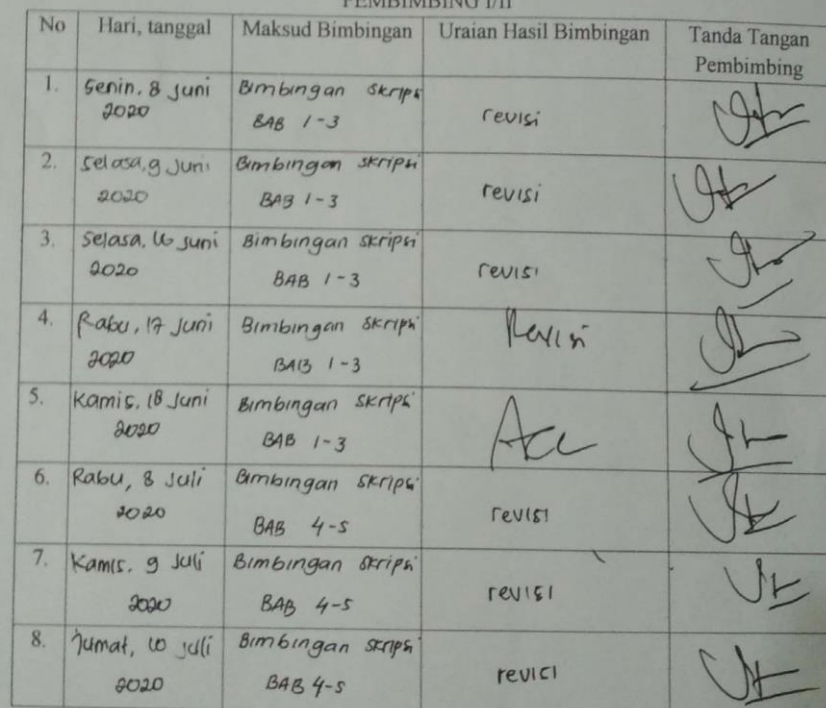 PEMBIMBING I/II
No Hari, tanggal Maksud Bimbingan Uraian Hasil Bimbingan Tanda Tangan
Pembimbing
1. Senin, 8 Juni Bimbingan Skripsi
2020 BAB 1-3 revisi
2. Selasa, 9 Juni Bimbingan skripsi
2020 BAB 1-3 revisi
3. Selasa, 16 Juni Bimbingan skripsi
2020 BAB 1-3 revisi
4. Rabu, 17 Juni Bimbingan Skripsi Revisi
2020 BAB 1-3
5. Kamis, 18 Juni Bimbingan Skripsi
2020 BAB 1-3 Acc
6. Rabu, 8 Juli Bimbingan Skripsi
2020 BAB 4-5 revisi
7. Kamis, 9 Juli Bimbingan Skripsi
2020 BAB 4-5 revisi
8. Jumat, 10 Juli Bimbingan Skripsi
2020 BAB 4-5 revisi